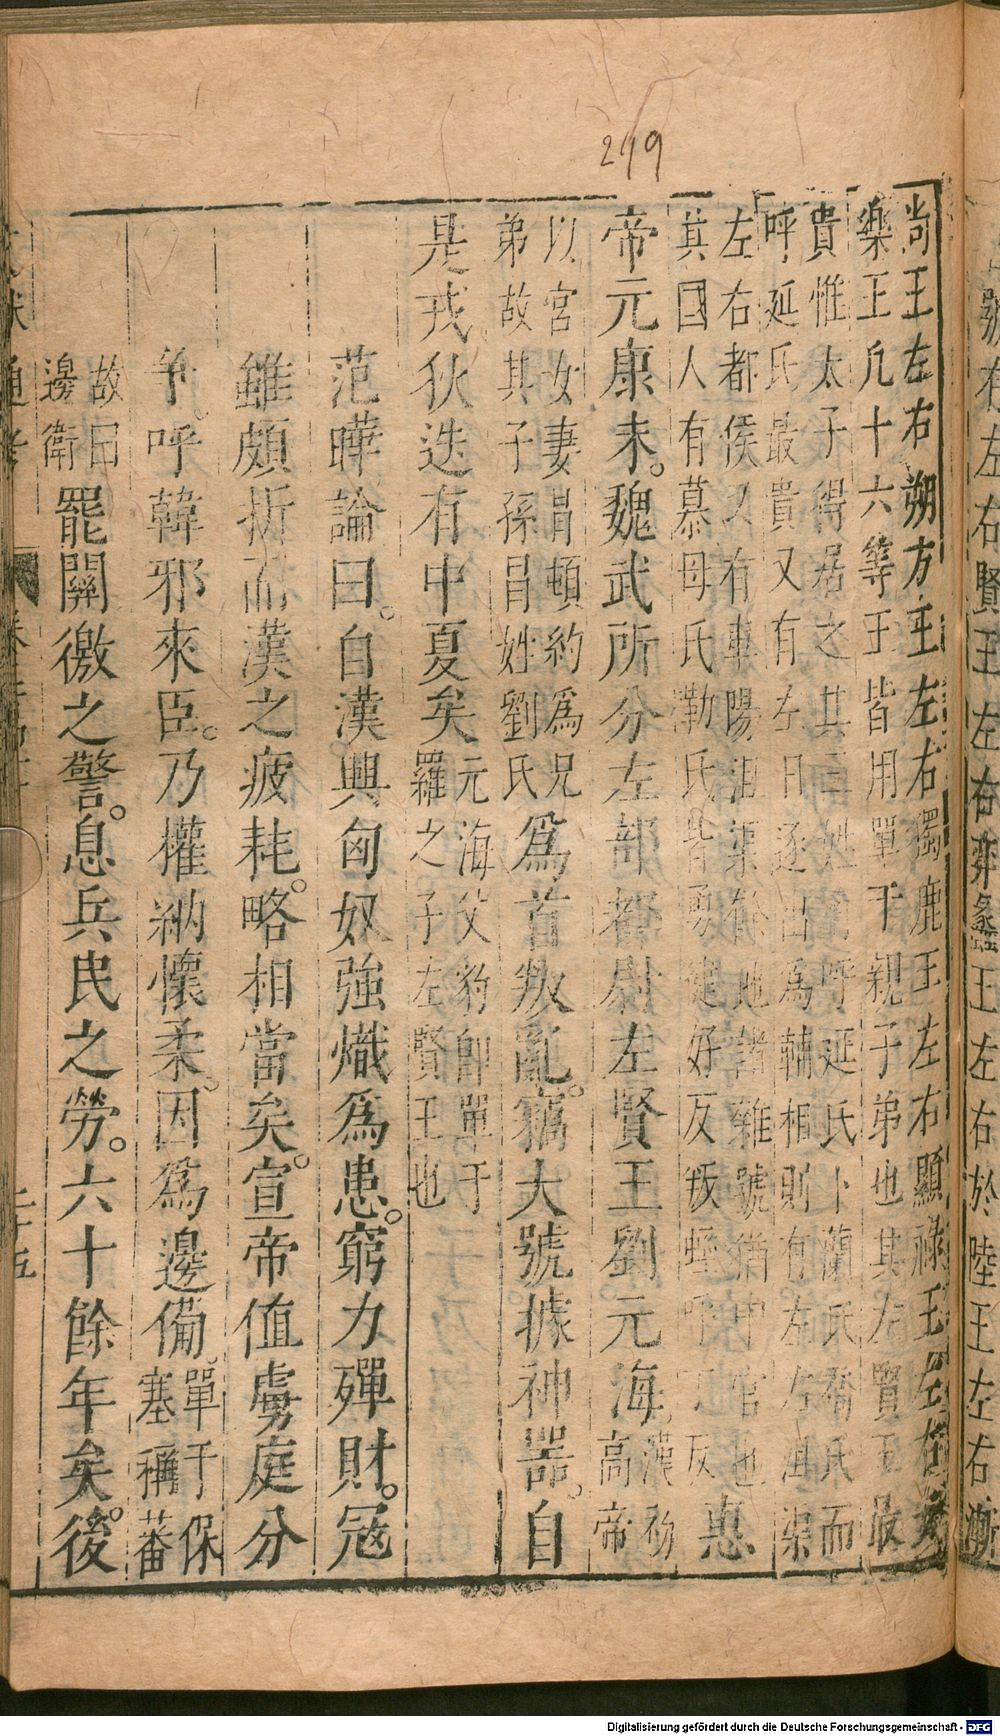 249
尚王左右朔方王左右獨鹿王左右顯祿王左右安
樂王凡十六等王皆用單于親子弟也其左賢王最
貴惟太子得居之其四姓有呼延氏卜蘭氏喬氏而
呼延氏最貴又有左日逐出為輔相則有左右沮渠
左右都侯又有車陽沮渠餘地諸雜號猶中官也
其國人有慕毋氏勒氏皆勇健好反叛
惠
帝元康末魏武所分左部都尉左賢王劉元海
漢初高帝
以宮女妻冒頓約為兄
弟故其子孫昌姓劉氏
為首叛亂竊大號據神器自
是戎狄迭有中夏矣
元海父豹卽單于
羅之子左賢王也
范曄論曰自漢興匈奴強熾為患窮力殫財寇
雖頗折而漢之疲耗略相當矣宣帝值虜庭分
爭呼韓邪來臣乃權納懷柔因為邊備
單于保
塞稱蕃
故曰
邊衛
罷關徼之警息兵民之勞六十餘年矣後
通考
二十五
號右
左右賢王左右弈蠡王左右於陸王左右漸
Digitalisierung gefördert durch die Deutsche Forschungsgemeinschaft - DFG